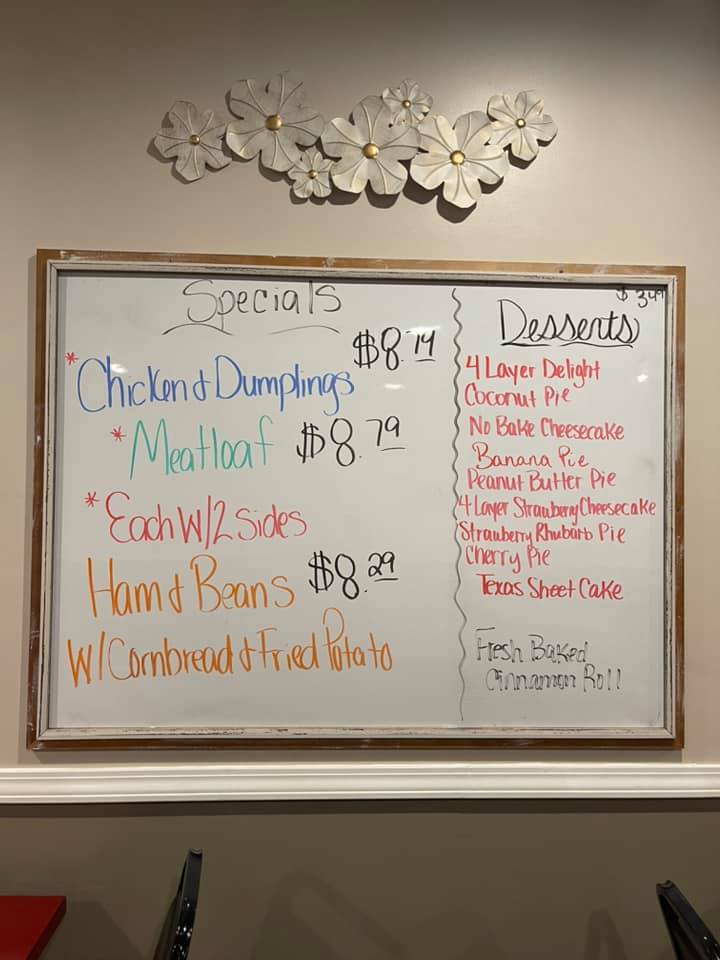 Specials
* Chicken & Dumplings $8.79
* Meatloaf $8.79
* Each W/2 Sides
Ham & Beans $8.29
W/Cornbread & Fried Potato
$3.49
Desserts
4 Layer Delight
Coconut Pie
No Bake Cheesecake
Banana Pie
Peanut Butter Pie
4 Layer Strawberry Cheesecake
Strawberry Rhubarb Pie
Cherry Pie
Texas Sheet Cake
Fresh Baked
Cinnamon Roll